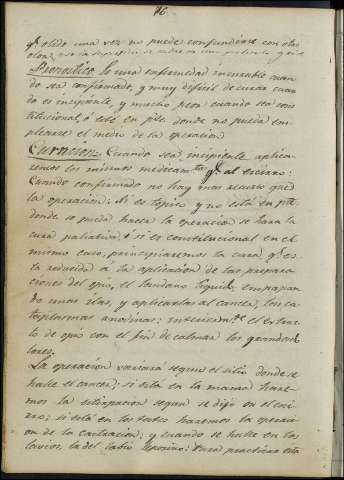 76.
q.e olido una vez no puede confundirse con otro
olor,
Pronostico. Es una enfermedad incurable cuan
do sea confirmado, y muy dificil de curar cuan
do es incipiente, y mucho peor cuando sea cons
titucional, ó esté en pte. donde no pueda em
plearse el medio de la operacion
Curacion: Cuando sea incipiente aplica
remos los mismos medicam.tos q.e al escirro:
Cuando confirmado no hay mas recurso que
la operacion. Si es topico y no está en pte.
donde se pueda hacer la operacion se hara la
cura paliativa: ó si es constitucional en el
mismo caso, principiaremos la cura, q.e es
ta reducida a la aplicacion de las prepara
ciones del opio, el laudano liquido, empapan
do unas ilas, y aplicarlas al cancer, los ca
taplasmas anodinas: interiorm.te el estrac
to de opio con el fin de calmar los grandes do
lores.
La operacion variará segun el sitio donde se
halle el cancer; si está en la mama hare
mos la estirpacion segun se dijo en el esci
rro; si está en los testes haremos la operaci
on de la castracion; y cuando se halle en los
lavios, la del labio leporino: Para practicar esta